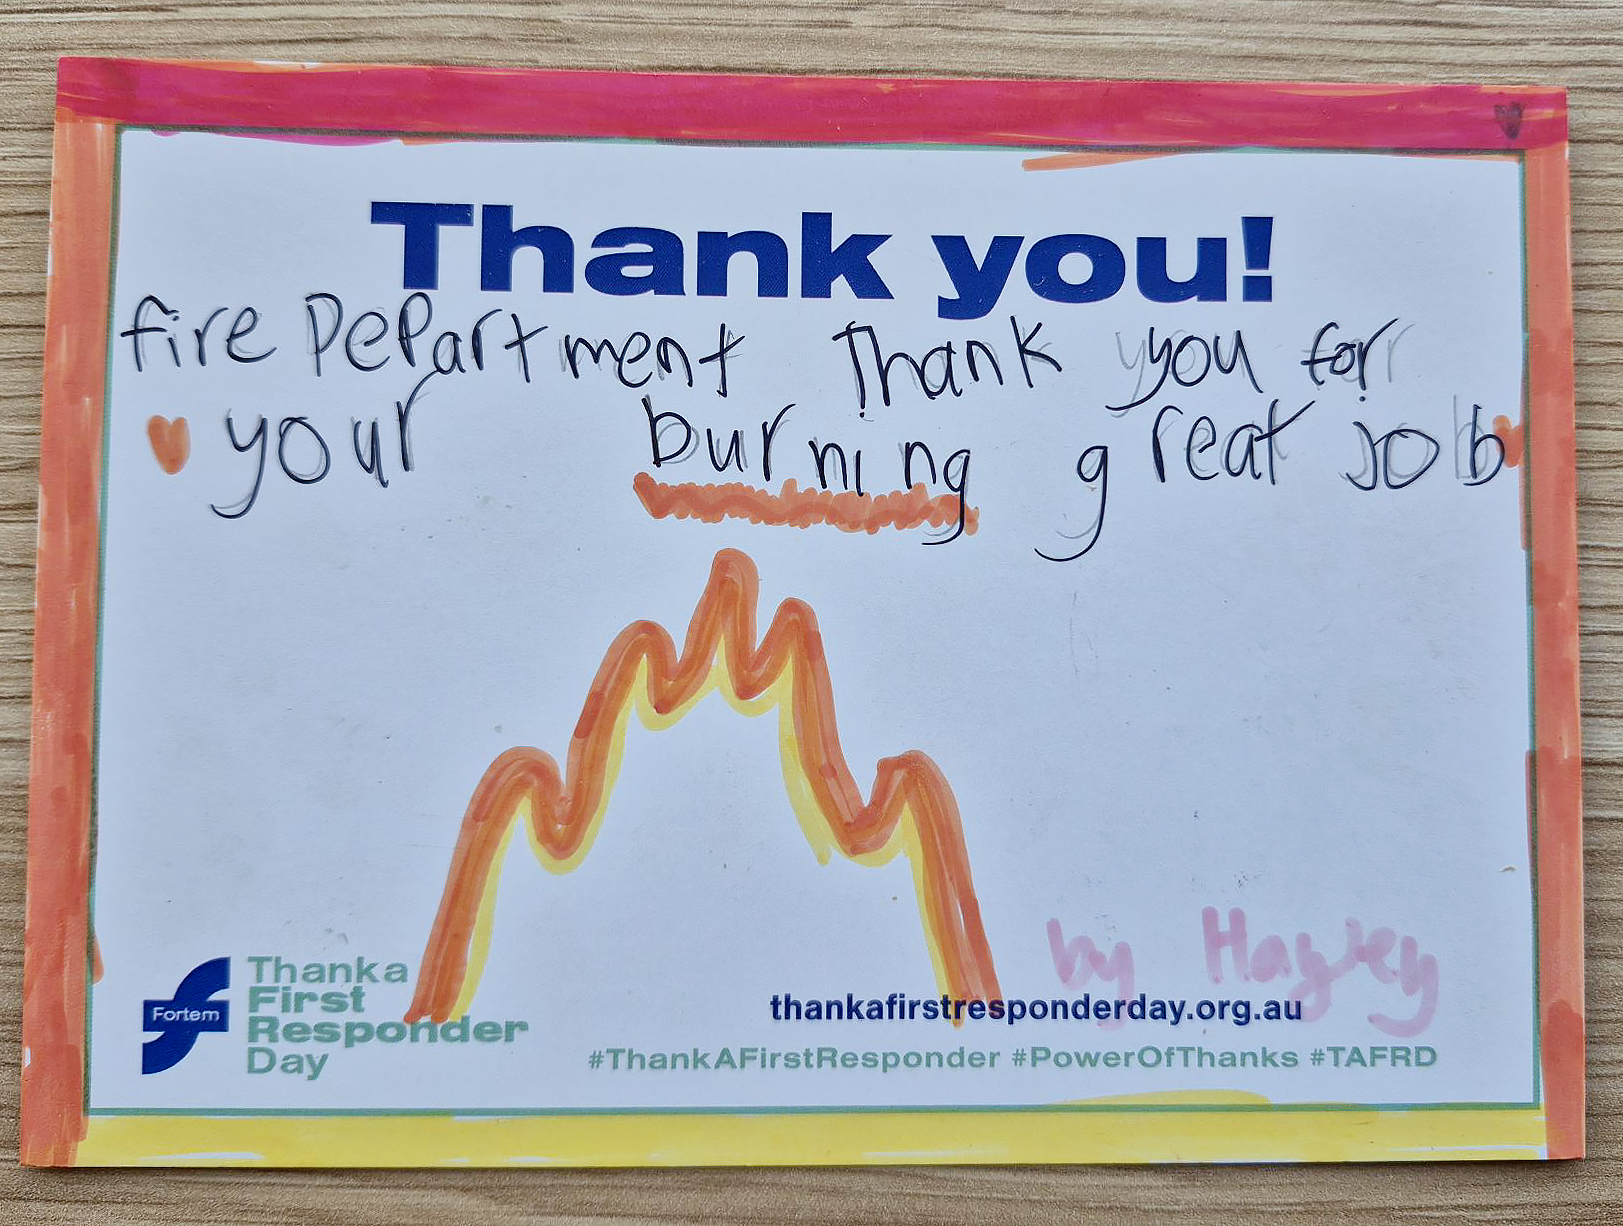 Thank you!
fire Department Thank you for
your burning great job
by Hayley
Fortem
Thank a
First
Responder
Day
thankafirstresponderday.org.au
#ThankAFirstResponder #PowerOfThanks #TAFRD